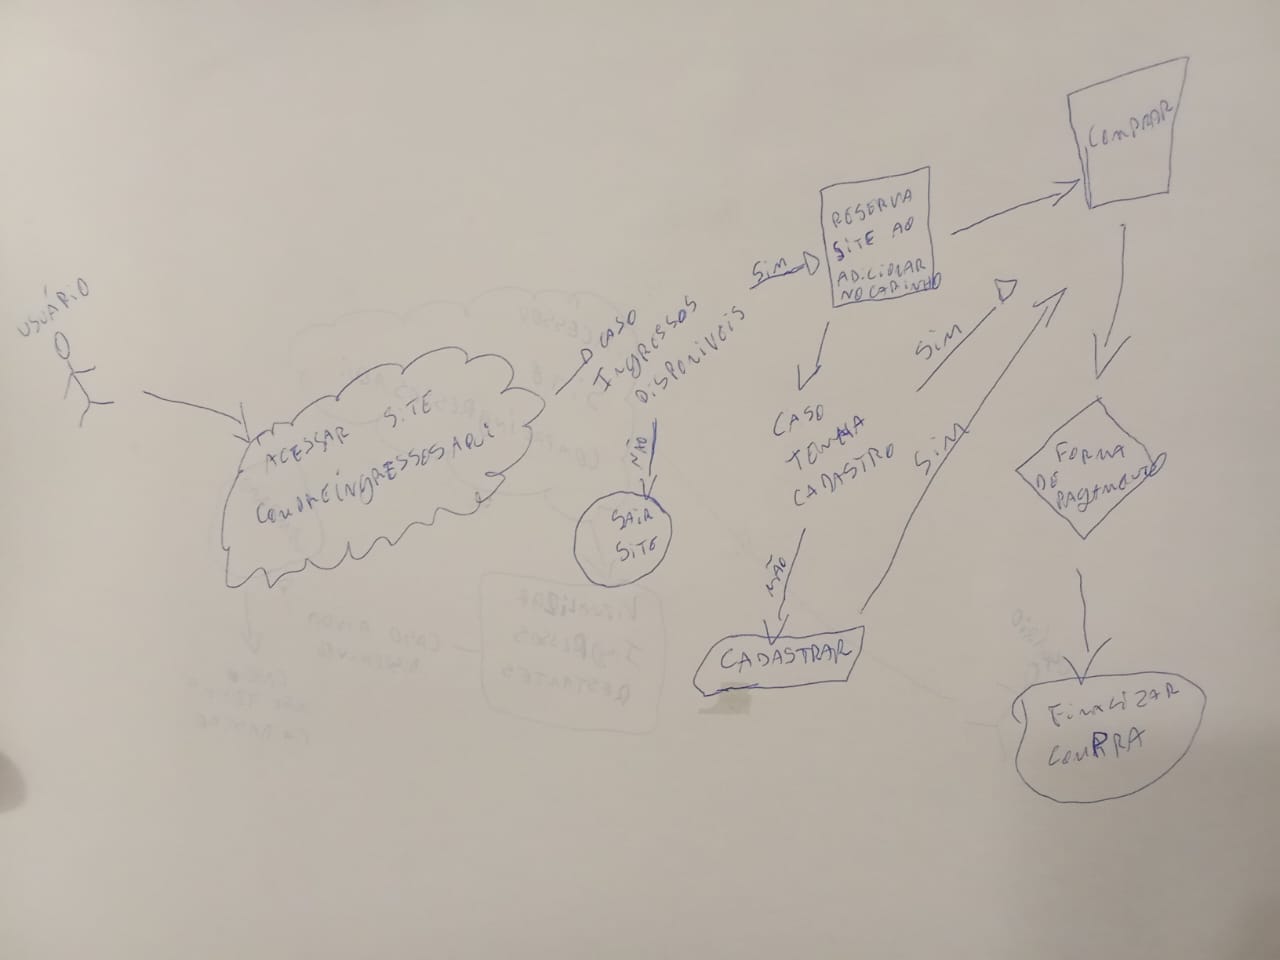 USUÁRIO
ACESSAR SITE
COMPREINGRESSOSAQUI
CASO
INgRESSOS
DISPONÍVEIS
NÃO
SAIR
SITE
SIM
RESERVA
SITE AO
ADICIONAR
NO CARINHO
CASO
TENHA
CADASTRO
NÃO
CADASTRAR
SIM
SIM
COMPRAR
FORMA
DE
PAGAMENTO
FINALIZAR
COMPRA